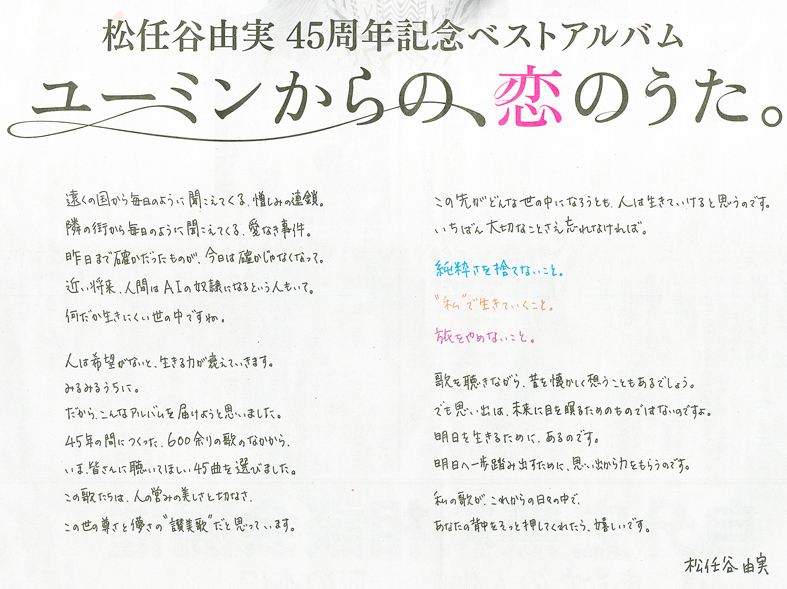 松任谷由実 45周年記念ベストアルバム
ユーミンからの、恋のうた。
遠くの国から毎日のように聞こえてくる、憎しみの連鎖。
隣の街から毎日のように聞こえてくる、愛なき事件。
昨日まで確かだったものが、今日は確かじゃなくなって。
近い将来、人間はAIの奴隷になるという人もいて。
何だか生きにくい世の中ですね。
人は希望がないと、生きる力が衰えていきます。
みるみるうちに。
だから、こんなアルバムを届けようと思いました。
45年の間につくった、600余りの歌のなかから、
いま、皆さんに聴いてほしい45曲を選びました。
この歌たちは、人の営みの美しさと切なさ、
この世の尊さと儚さの“讃美歌”だと思っています。
この先がどんな世の中になろうとも、人は生きていけると思うのです。
いちばん大切なことさえ忘れなければ。
純粋さを捨てないこと。
“私”で生きていくこと。
旅をやめないこと。
歌を聴きながら、昔を懐かしく想うこともあるでしょう。
でも思い出は、未来に目を瞑るためのものではないのですよ。
明日を生きるために、あるのです。
明日へ一歩踏み出すために、思い出から力をもらうのです。
私の歌が、これからの日々の中で、
あなたの背中をそっと押してくれたら、嬉しいです。
松任谷由実